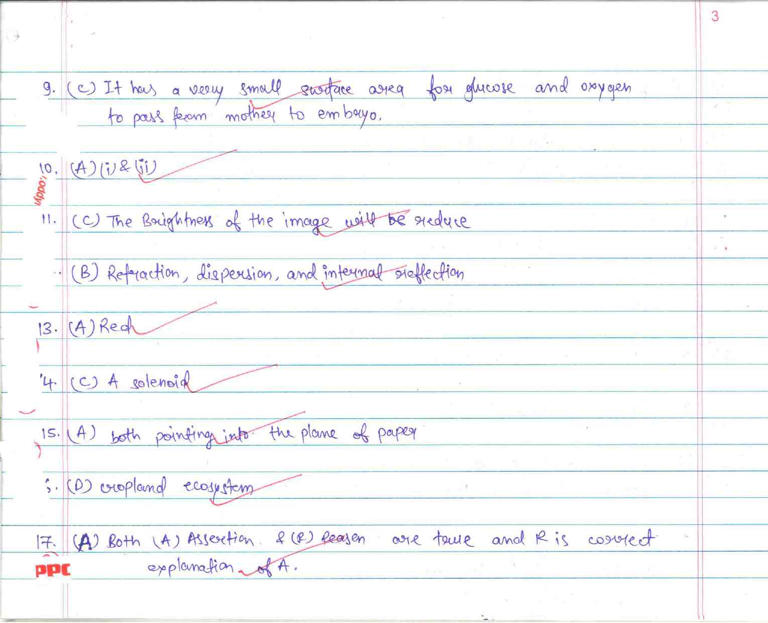 3
9. (C) It has a very small surface area for glucose and oxygen
to pass from mother to embryo.
10. (A) (i) & (ii)
11. (C) The Brightness of the image will be reduce
(B) Refraction, dispersion, and internal reflection
13. (A) Red
4. (C) A solenoid
15. (A) both pointing into the plane of paper
(D) cropland ecosystem
17. (A) Both (A) Assertion & (R) Reason are true and R is correct
ppc explanation of A.